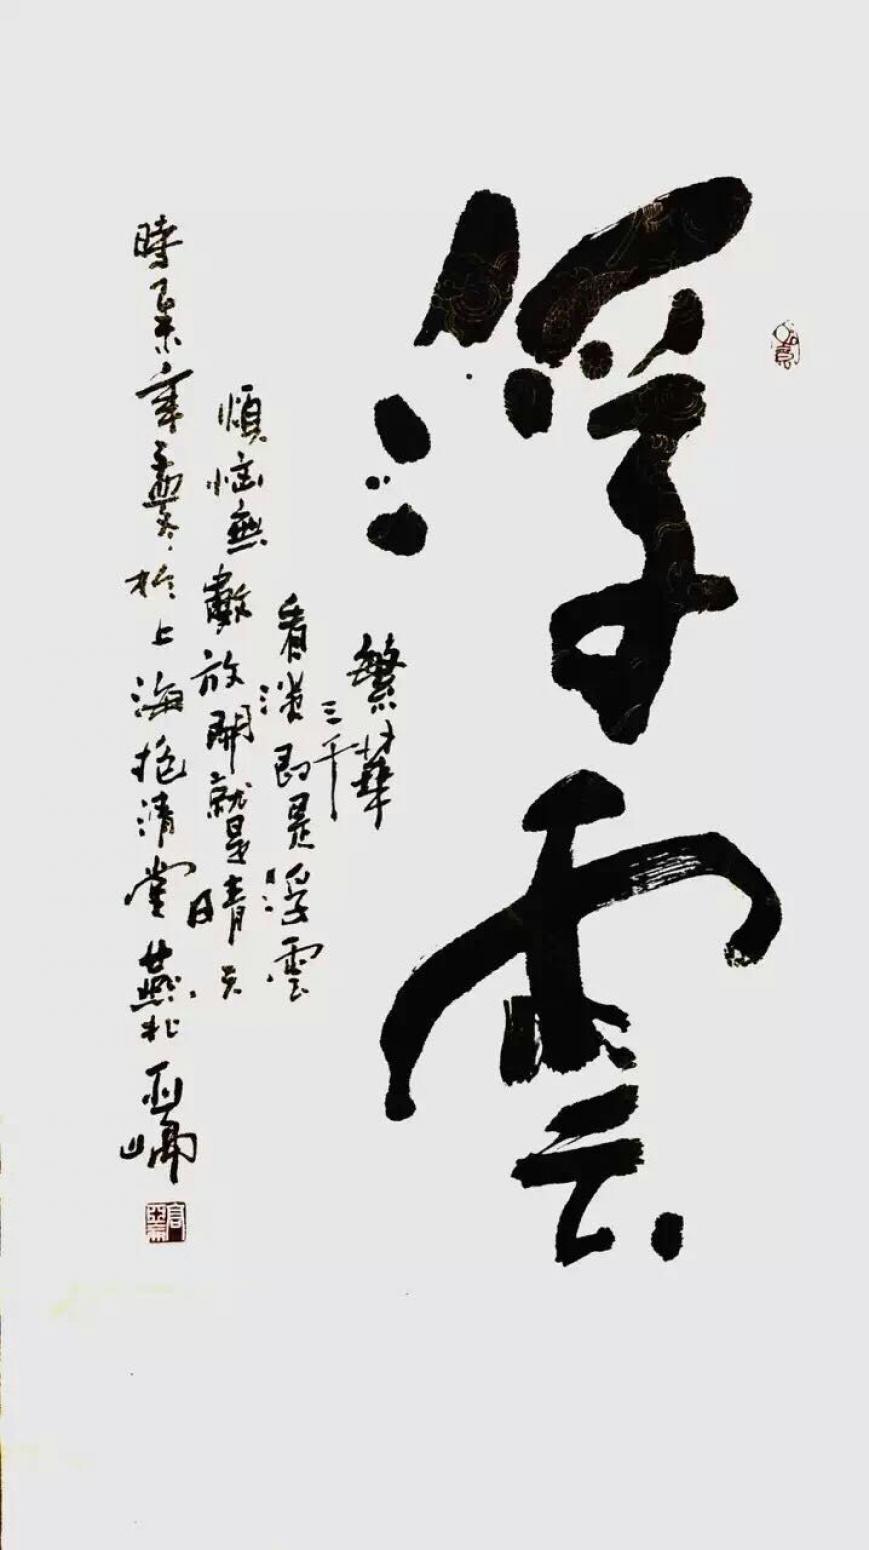 浮雲
繁華
三千
看淡即是浮雲
煩惱無數放開就是晴天
時 年 冬於上海抱清堂燕北